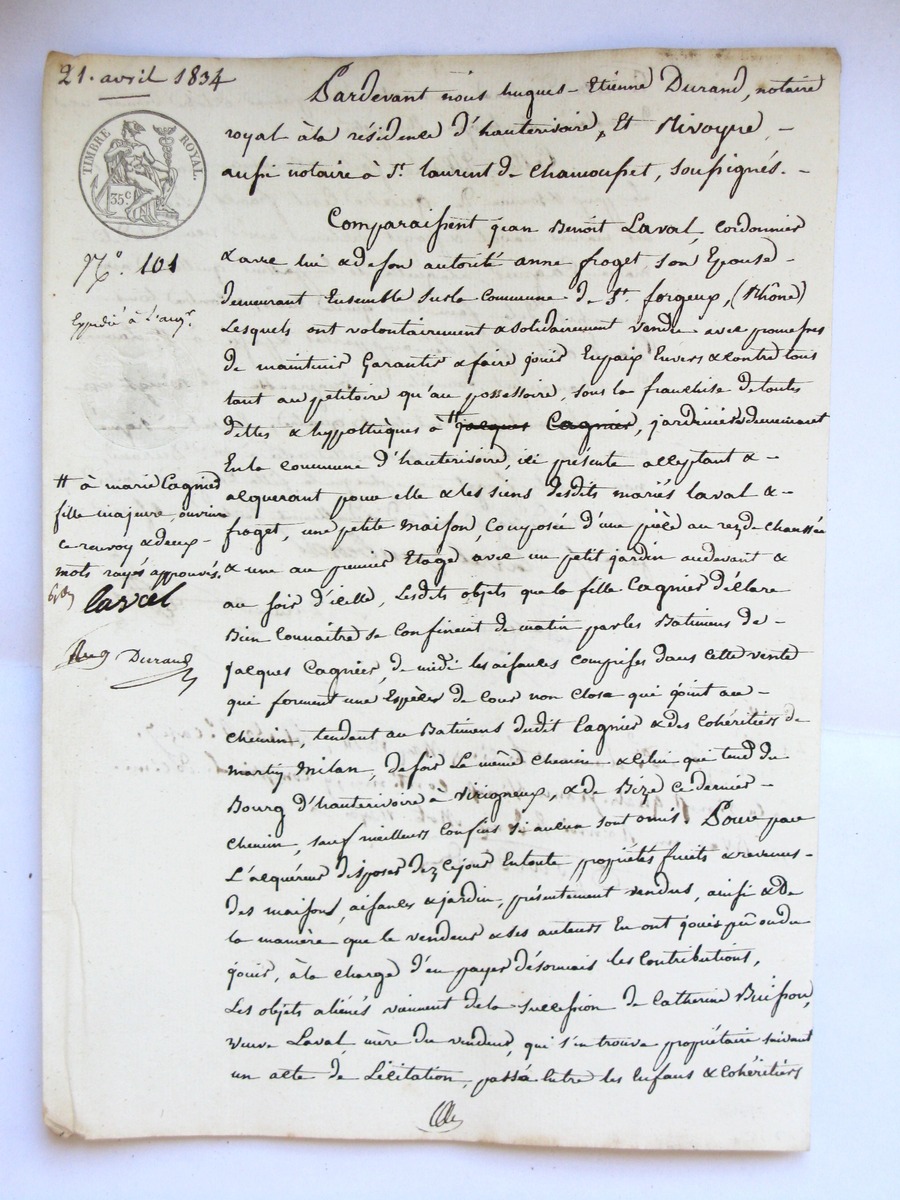 21. avril 1834
TIMBRE ROYAL.
35 c.
N.° 101
Expédié à l'acqr.
Pardevant nous hugues-Etienne Durand, notaire
royal à la résidence d'hauterivoire, Et Rivoyre,
aussi notaire à St. laurent de Chamousset, soussignés. -
Comparaissent jean Benoit Laval, Cordonnier
& avec lui & de son autorité anne froget son Epouse
demeurant Ensemble sur la Commune de St. forgeux, (Rhône)
Lesquels ont volontairement & solidairement vendu avec promesses
de maintenir Garantir & faire jouir En paix Envers & contre tous
tant au petitoire qu'au possessoire, sous la franchise de toutes
dettes & hypothèques à # jacques Cagnier, jardinier demeurant
En la commune d'hauterivoire, ici présente acceptant & -
acquerant pour elle & les siens desdits mariés laval & -
froget, une petite Maison, Composée d'une pièce au rez de chaussée
& une au premier Etage avec un petit jardin au devant &
au soir d'icelle, Lesdits objets que la fille Cagnier déclare
Bien Connaître se Confinent de matin par les Batimens de -
jacques Cagnier, de midi les aisances comprises dans cette vente
qui forment une Espèce de Cour non Close qui joint au -
Chemin, tendant au Batimens dudit Cagnier & des Cohéritiers de
Milan, de soir Le même Chemin & Celui qui tend du
Bourg d'hauterivoire à Virigneux, & de Bize ce dernier -
Chemin, sauf meilleurs Confins si aucun sont omis. Pour par
L'acquéreur disposer dez ce jour En toute propriétés fruits & revenus -
des maison, aisances & jardin, présentement vendus, ainsi & De
la manière que le vendeur & ses auteurs En ont joui pû ou du
jouir, à la charge d'en payer désormais les Contributions,
Les objets aliénés viennent de la Succession de Catherine Buisson,
veuve Laval mère du vendeur, qui s'en trouva propriétaire suivant
un acte de Licitation, passé Entre les Enfans & Cohéritiers
# à marie Cagnier
fille majeure, ouvrière
ce renvoy & deux -
mots rayés approuvés.
laval
Durand